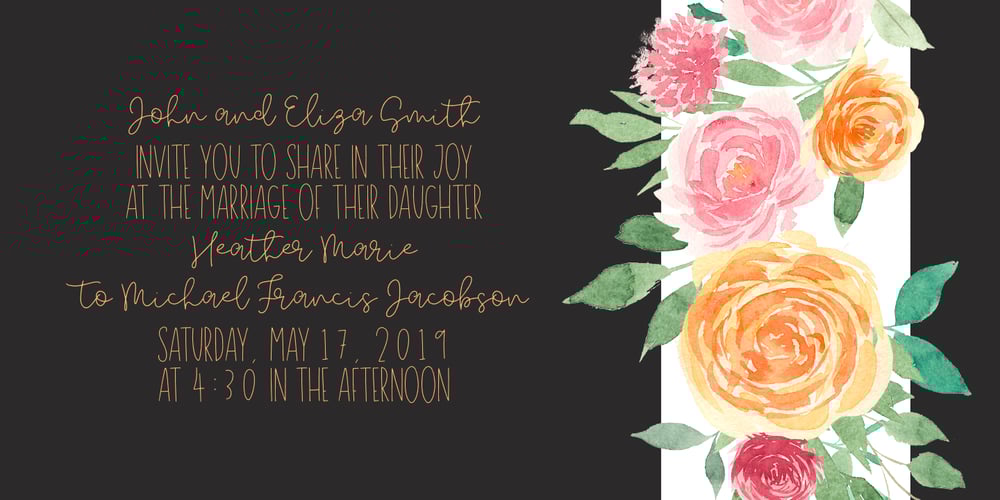 John and Eliza Smith
INVITE YOU TO SHARE IN THEIR JOY
AT THE MARRIAGE OF THEIR DAUGHTER
Heather Marie
to Michael Francis Jacobson
SATURDAY, MAY 17, 2019
AT 4:30 IN THE AFTERNOON